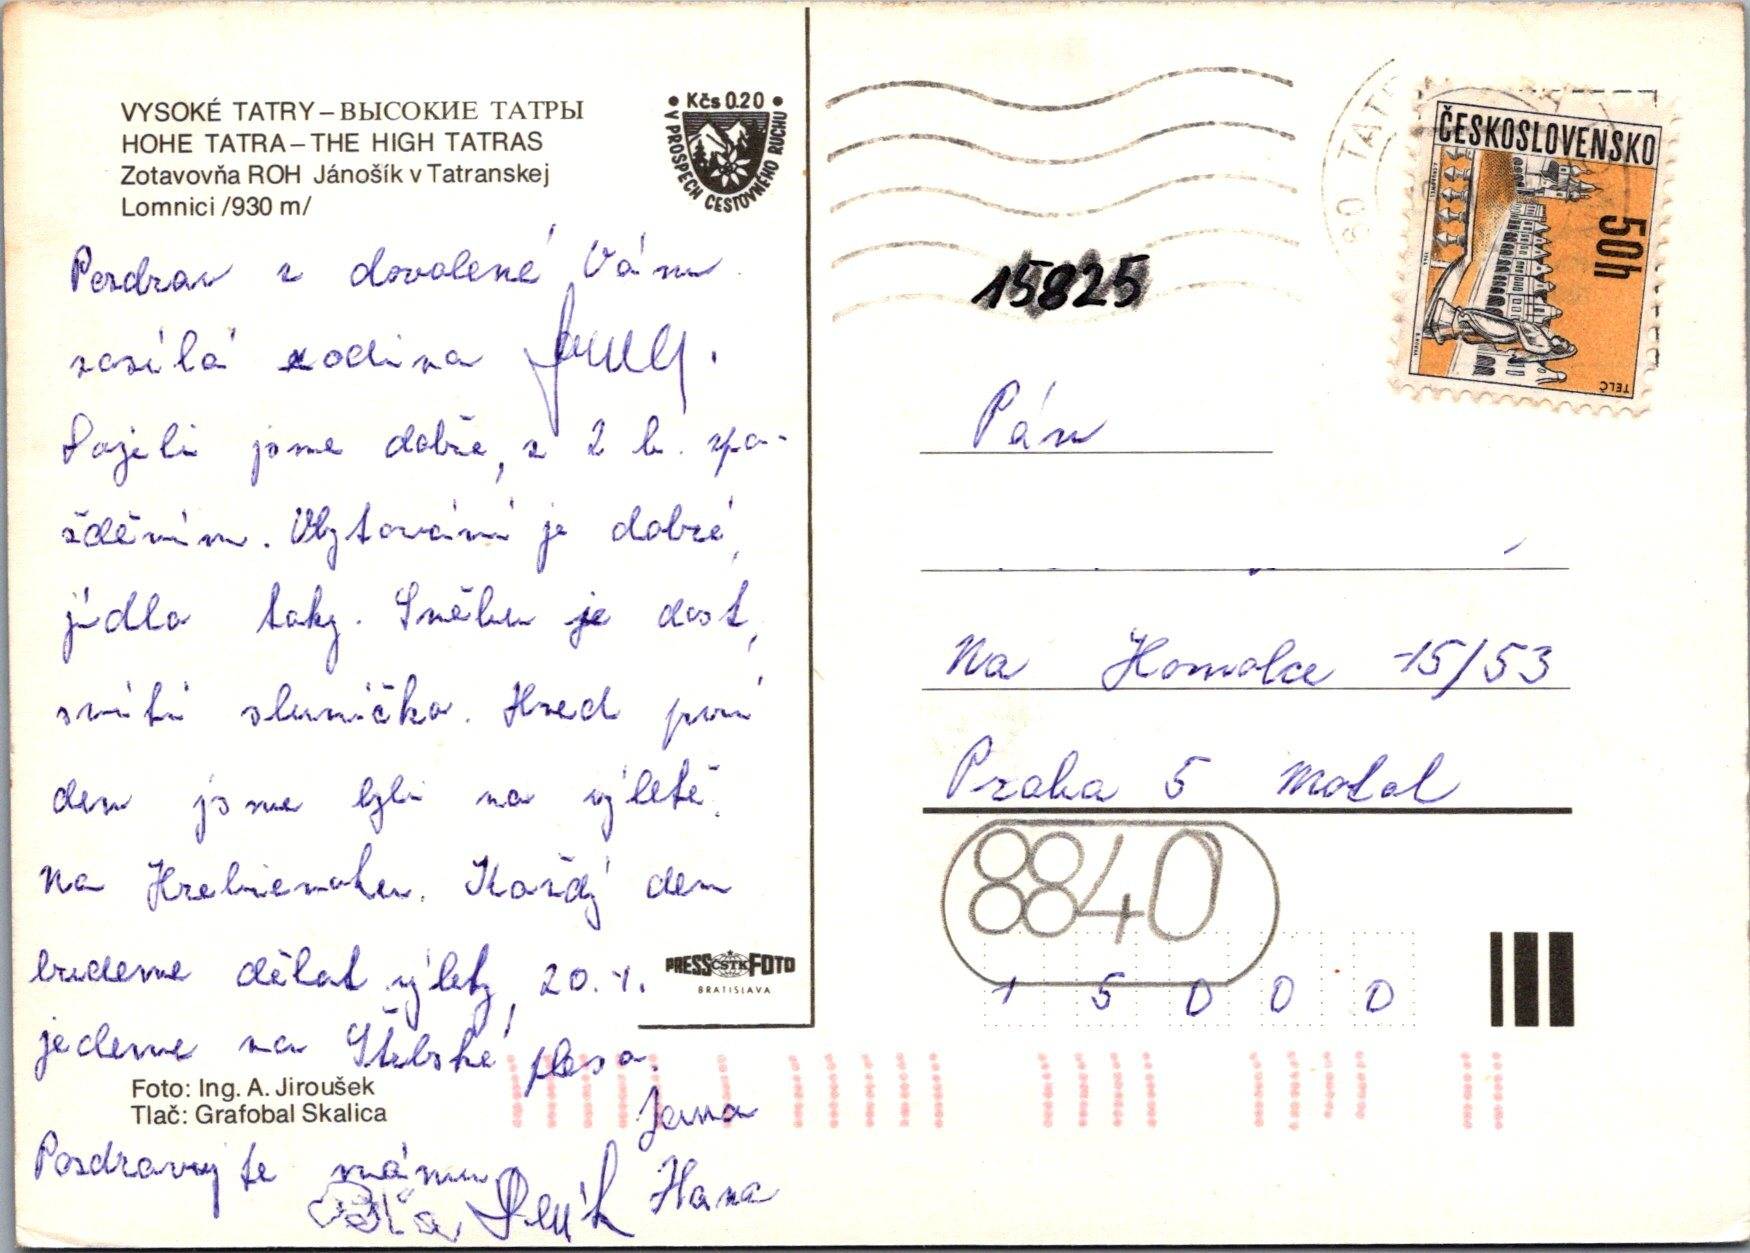 VYSOKÉ TATRY – ВЫСОКИЕ ТАТРЫ
HOHE TATRA – THE HIGH TATRAS
Zotavovňa ROH Jánošík v Tatranskej
Lomnici /930 m/
• Kčs 0.20 •
V PROSPECH CESTOVNÉHO RUCHU
Pozdrav z dovolené Vám
zasílá rodina
Dojeli jsme dobře, s 2 h. zpo-
žděním. Ubytování je dobré,
jídlo taky. Sněhu je dost,
svítí sluníčko. Hned první
den jsme byli na výletě.
Na Hrebienoku. Každý den
budeme dělat výlety, 20.1.
jedeme na Štrbské pleso.
Jana
Pozdravujte mámu
Hana
PRESS ČSTK FOTO
BRATISLAVA
Foto: Ing. A. Jiroušek
Tlač: Grafobal Skalica
60 TATR
ČESKOSLOVENSKO
50h
TELČ
15825
Pán
Na Homolce 15/53
Praha 5 Motol
8840
15000